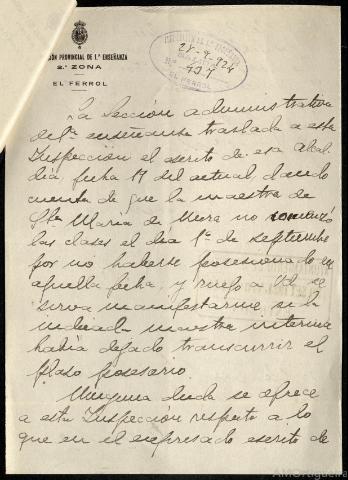 CIÓN PROVINCIAL DE 1.ª ENSEÑANZA
2.ª ZONA
EL FERROL
28-9-924
EL FERROL
La Sección administrativa
de 1ª enseñanza traslada a esta
Inspección el escrito de esa Alcal-
día fecha 17 del actual dando
cuenta de que la maestra de
Stª María de Mera no comenzó
las clases el día 1º de septiembre
por no haberse posesionado en
aquella fecha, y ruego a Vd se
sirva manifestarme si la
indicada maestra interina
había dejado transcurrir el
plazo posesorio
Ninguna duda se ofrece
a esta Inspección respecto a lo
que en el expresado escrito de
AMOrtigueira